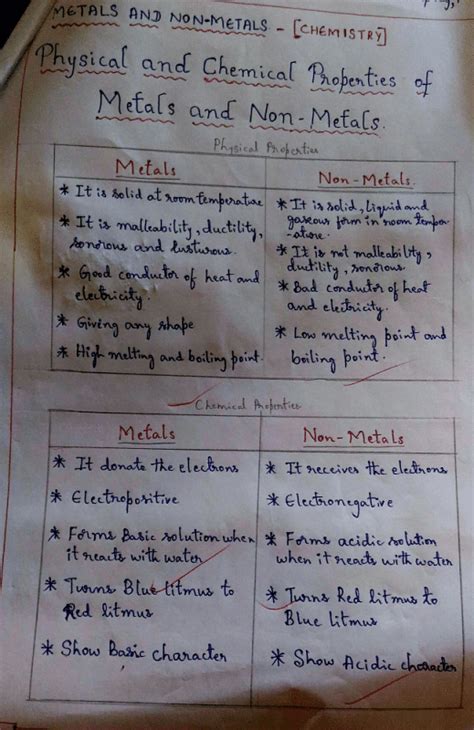 METALS AND NON-METALS - [CHEMISTRY]
Physical and Chemical Properties of
Metals and Non-Metals.
Physical Properties
Metals
* It is solid at room temperature
* It is malleability, ductility,
sonorous and lusturous.
* Good conductor of heat and
electricity.
* Giving any shape
* High melting and boiling point.
Non-Metals.
* It is solid, liquid and
gaseous form in room tempor-
-ature.
* It is not malleability,
ductility, sonorious.
* Bad conductor of heat
and electricity.
* Low melting point and
boiling point.
Chemical Properties
Metals
* It donate the electrons
* Electropositive
* Forms Basic solution when
it reacts with water
* Turns Blue litmus to
Red litmus
* Show Basic character
Non-Metals
* It receives the electrons
* Electronegative
* Forms acidic solution
when it reacts with water
* Turns Red litmus to
Blue litmus
* Show Acidic character